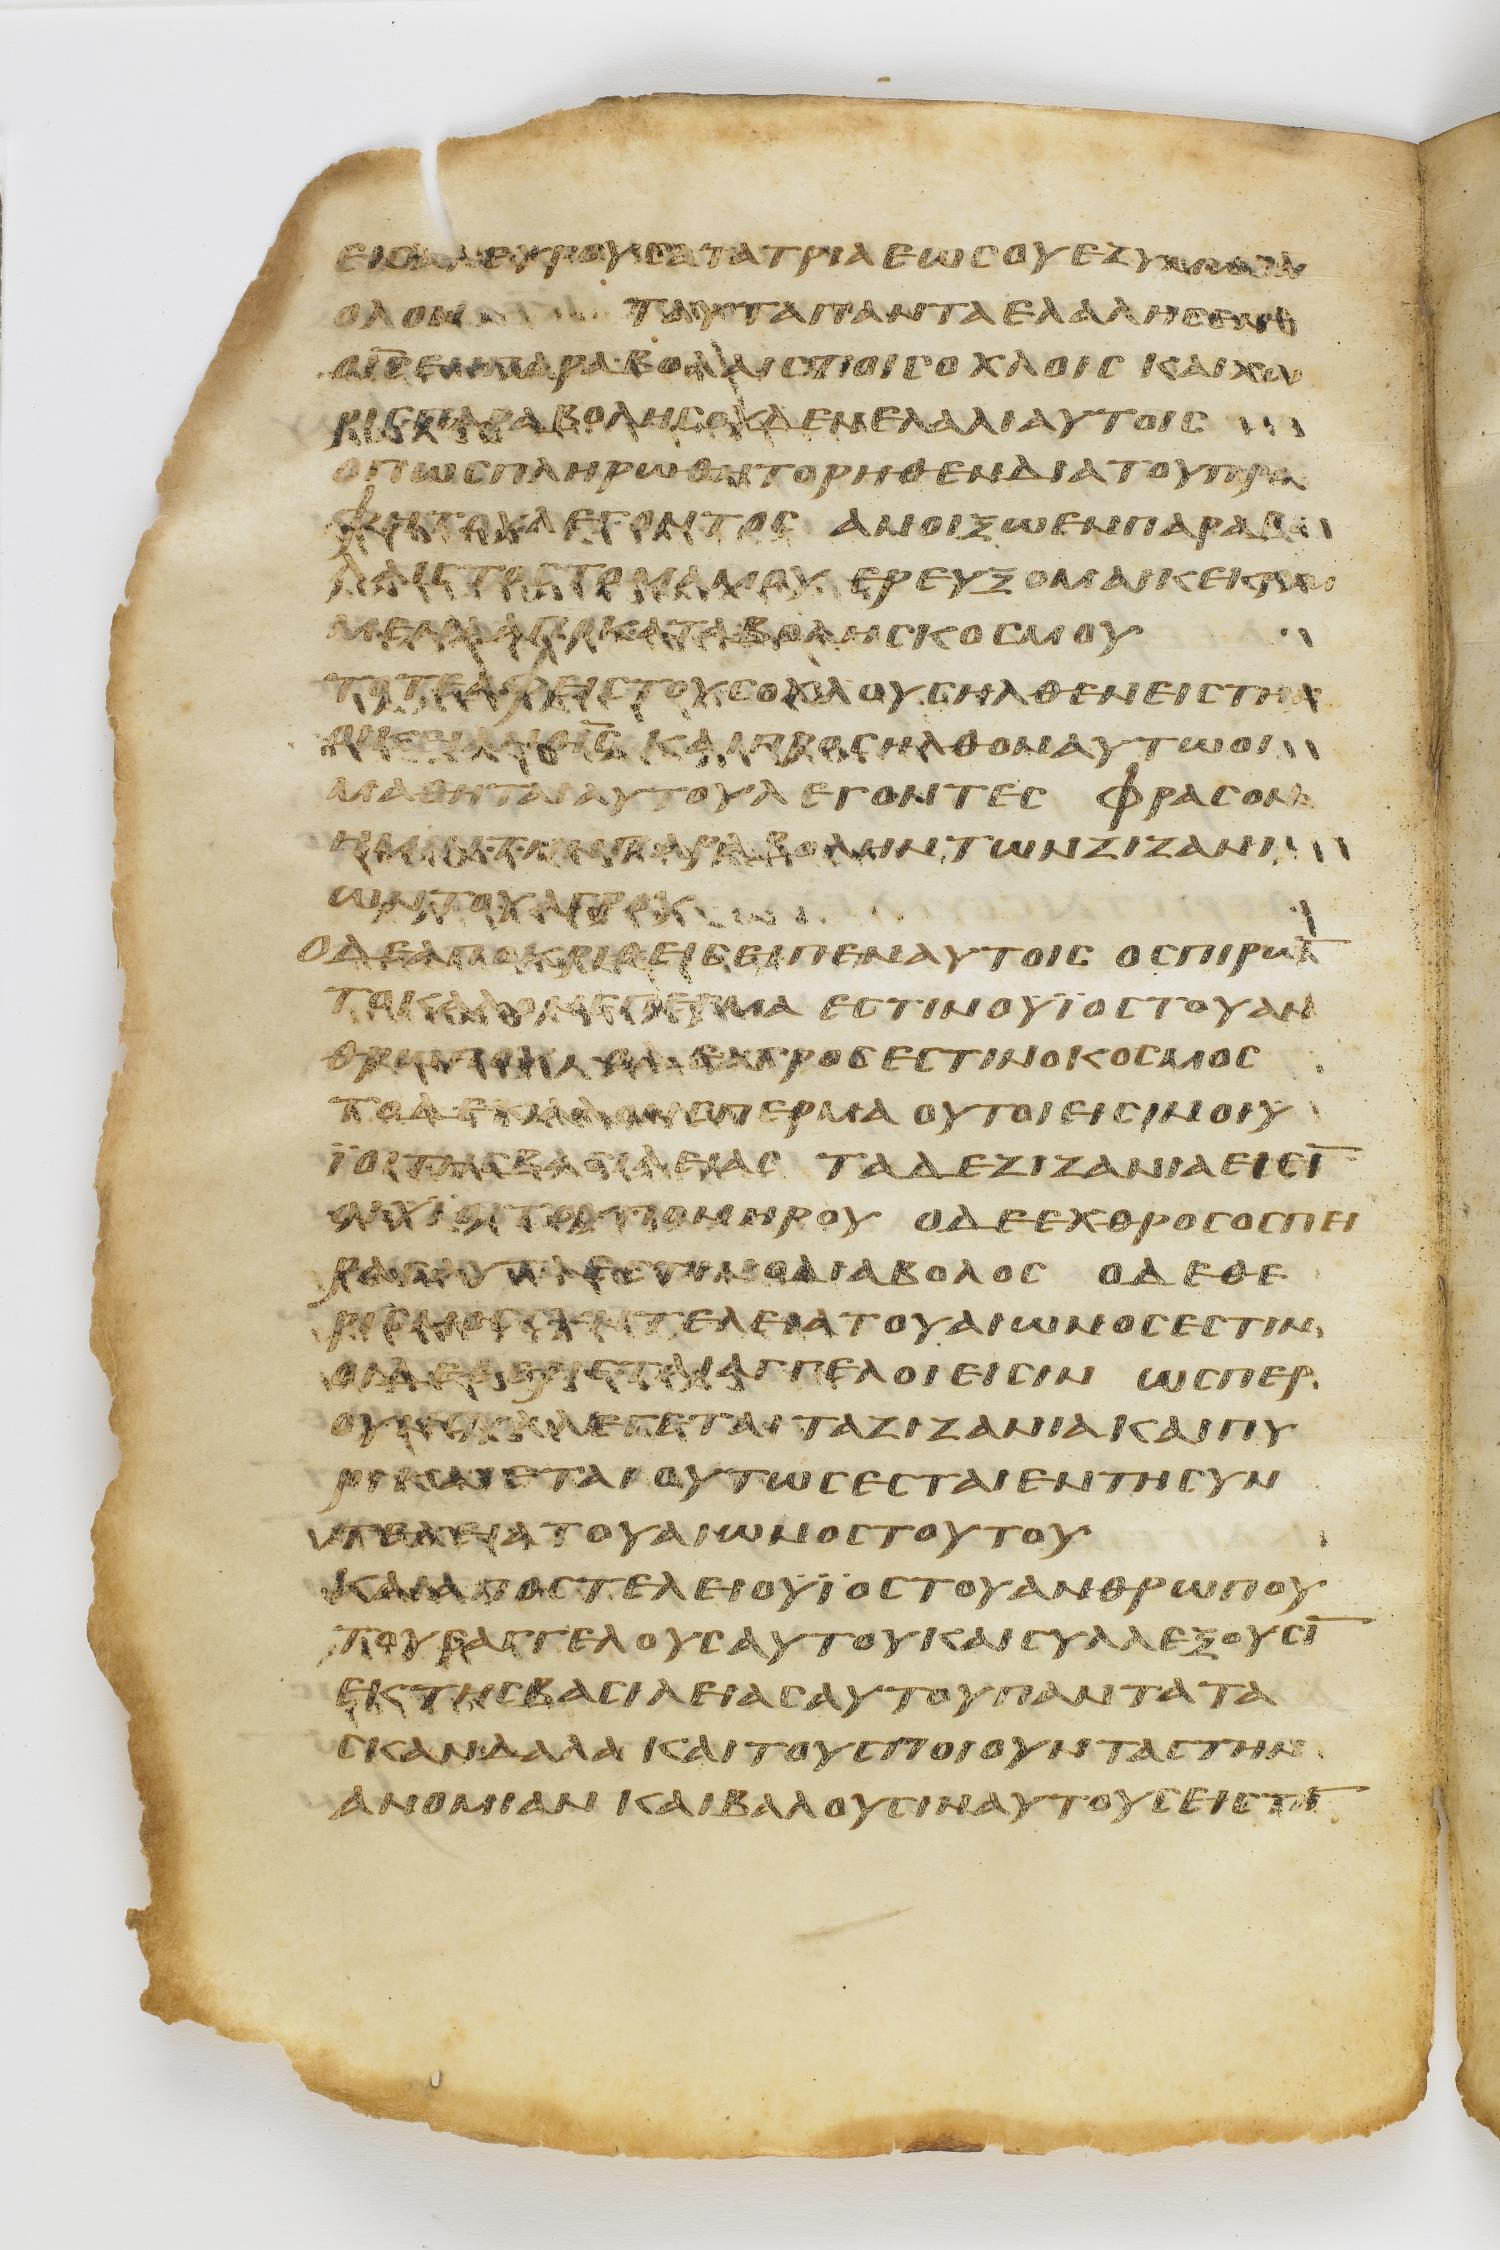 εισαλευρουσατατριαεωσουεζυμωθη
ολον ταυταπανταελαλησεν
οισενπαραβολαιστοισοχλοισκαιχω
ρισπαραβολησουδενελαλιαυτοισ
οπωσπληρωθητορηθενδιατουπρο
φητουλεγοντοσ ανοιξωενπαραβο
λαιστοστομαμου ερευξομαικεκρυμ
μενααποκαταβολησκοσμου
τοτεαφειστουσοχλουσηλθενειστην
οικιανοισκαιπροσηλθοναυτωοι
μαθηταιαυτουλεγοντεσ φρασον
ημιντηνπαραβοληντωνζιζανι
ωντουαγρου
οδεαποκριθεισειπεναυτοισ οσπιρων
τοκαλονσπερμα εστινοϋϊοστουαν
θρωπουοδεαγροσεστινοκοσμοσ
τοδεκαλονσπερμα ουτοιεισινοιυ
ϊοιτησβασιλειασ ταδεζιζανιαεισι
οιυϊοιτουπονηρου οδεεχθροσοσπει
ρασαυταεστινοδιαβολοσ οδεθε
ρισμοσσυντελειατουαιωνοσεστιν
οιδεθερισταιαγγελοιεισιν ωσπερ
ουνσυλλεγεταιταζιζανιακαιπυ
ρικαιεταιουτωσεσταιεντησυν
τελειατουαιωνοστουτου
καιαποστελειοϋϊοστουανθρωπου
τουσαγγελουσαυτουκαισυλλεξουσι
εκτησβασιλειασαυτουπαντατα
σκανδαλακαιτουσποιουνταστην
ανομιανκαιβαλουσιναυτουσειστη